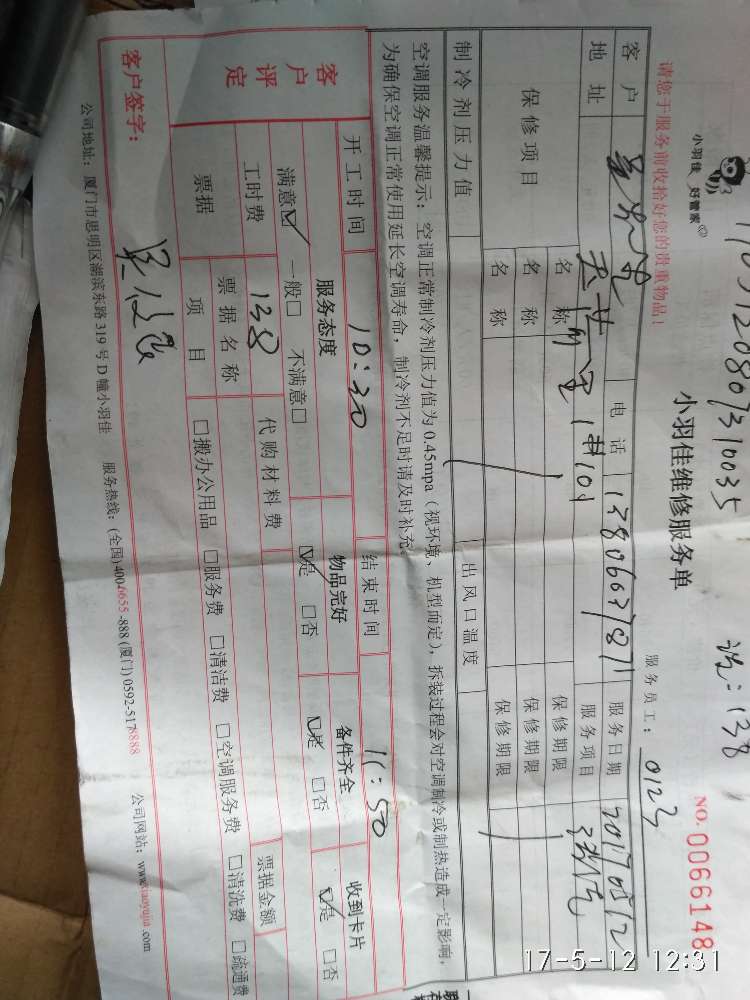 小羽佳 好管家
170512080310035
小羽佳维修服务单
NO. 0066148
请您于服务前收拾好您的贵重物品！
服务员工：0123
客户 电话 服务日期 20170512
地址 服务项目
保修项目 名称 保修期限
名称 保修期限
名称 保修期限
制冷剂压力值 出风口温度
空调服务温馨提示：空调正常制冷剂压力值为0.45mpa（视环境、机型而定），拆装过程会对空调制冷或制热造成一定影响，
为确保空调正常使用延长空调寿命，制冷剂不足时请及时补充。
开工时间 10:30 结束时间 11:50
客户评定 服务态度 物品完好 备件齐全 收到卡片
满意☑ 一般□ 不满意□ ☑是 □否 ☑是 □否 ☑是 □否
工时费 138 代购材料费 票据金额
票据 票据名称
项目 □搬办公用品 □服务费 □清洁费 □空调服务费 □清洗费 □疏通费
客户签字：
公司地址：厦门市思明区湖滨东路319号D幢小羽佳 服务热线：(全国)4006655-888 (厦门) 0592-5178888 公司网站：www.xiaoyujia.com
17-5-12 12:31